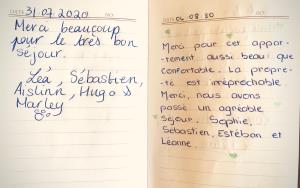 DATE 31.07.2020
Merci beaucoup
pour le très bon
séjour.
Léa, Sébastien,
Aislinn, Hugo &
Marley
DATE 04.08.20
Merci pour cet appar-
tement aussi beau que
confortable. La propre-
té est irréprochable.
Merci, nous avons
passé un agréable
séjour. Sophie,
Sébastien, Estéban et
Léanne.